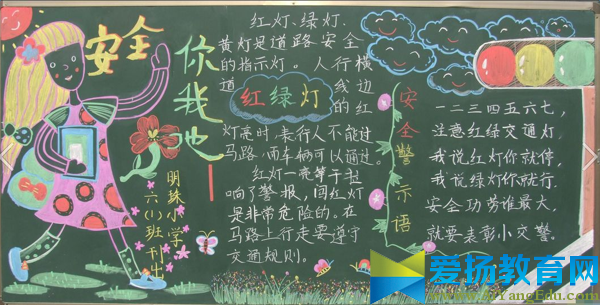 安全
你我他
明珠小学
六(1)班刊出
红灯、绿灯、
黄灯是道路安全
的指示灯。人行横
道
线边
的红
红绿灯
灯亮时，表行人不能过
马路，而车辆可以通过。
红灯一亮等于拉
响了警报，闯红灯
是非常危险的。在
马路上行走要遵守
交通规则。
安全警示语
一二三四五六七，
注意红绿交通灯。
我说红灯你就停，
我说绿灯你就行。
安全功劳谁最大，
就要表彰小交警。
爱扬教育网
YangEdu.com